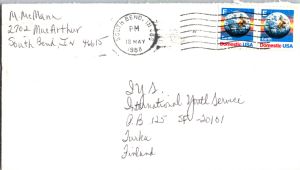 M. McMann
2702 MacArthur
South Bend, IN 46615
SOUTH BEND, IN
PM
18 MAY
1988
E
Domestic USA
E
Domestic USA
I.Y.S.
International Youth Service
P.B 125 SF-20101
Turku
Finland